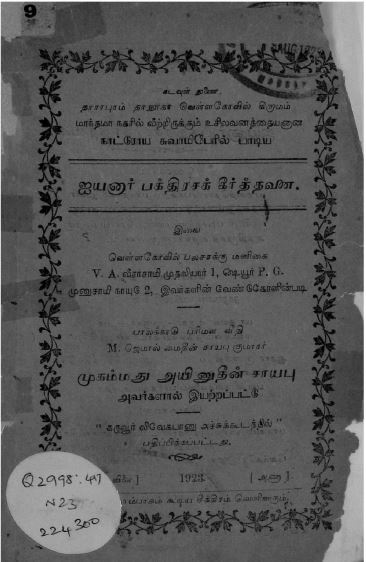 9
கடவுள் துணை.
தாராபுரம் தாலூகா வெள்ளகோவில் கிராமம்
மாந்தமா நகரில் வீற்றிருக்கும் உசிலவனத்தையனான
காட்ரோய சுவாமிபேரில் பாடிய
ஐயனார் பக்திரசக் கீர்த்தனை.
இவை
வெள்ளகோவில் பலசரக்கு மளிகை
V. A. வீராசாமி முதலியார் 1, ஷெயூர் P. G.
முனுசாமி நாயுடு 2, இவர்களின் வேண்டுகோளின்படி
பாலக்காடு வீதி
M. ஜெமால் மைதீன் சாயபு குமாரர்
முகம்மது அயினுதீன் சாயபு
அவர்களால் இயற்றப்பட்டு
" கருவூர் விவேகபாநு அச்சுக்கூடத்தில் "
பதிப்பிக்கப்பட்டது.
விலை ] 1923 [ அணா ]
கூடிய சீக்கிரம் வெளிவரும்.
Q2998:417
N23
224300